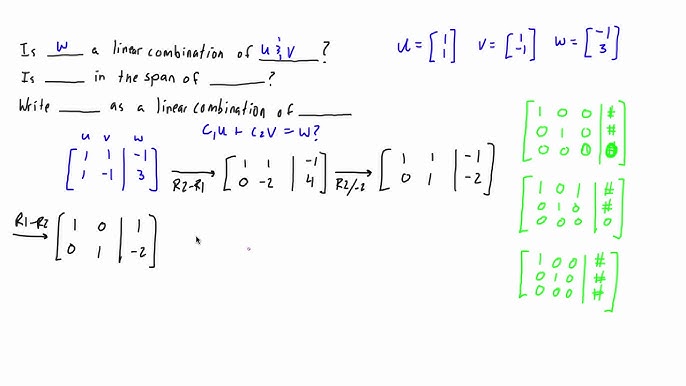 Is w a linear combination of u & v ?
u = [1 1] v = [1 -1] w = [-1 3]
Is ____ in the span of ________?
Write ____ as a linear combination of ______
c₁u + c₂v = w?
u v w
[1 1 | -1
1 -1 | 3]
R2-R1
[1 1 | -1
0 -2 | 4]
R2/-2
[1 1 | -1
0 1 | -2]
R1-R2
[1 0 | 1
0 1 | -2]
[1 0 0 | #
0 1 0 | #
0 0 0
[1 0 1 | #
0 1 0 | #
0 0 0 | 0]
[1 0 0 | #
0 1 0 | #
0 0 0 | #]